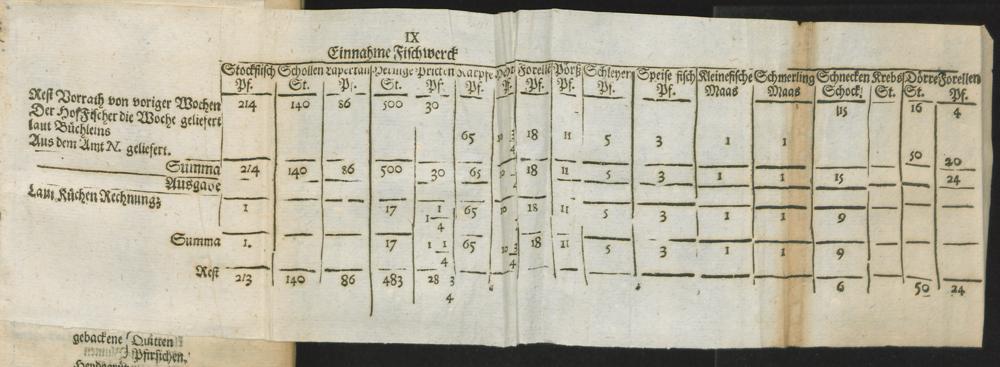 IX
Einnahme Fischwerck
Stockfisch Schollen Lapertan Heringe Pricken Karpfe Hecht Forelle Pörß Schleyen Speise fisch Kleinefische Schmerling Schnecken Krebs Dörre Forellen
Pf. St. St. Pf. Pf. Pf. Pf. Pf. Pf. Pf. Maas Maas Schock St. St. Pf.
Rest Vorrath von voriger Wochen 214 140 86 500 30 15 16 4
Der HofFischer die Woche geliefert
laut Büchleins 65 10 3/4 18 11 5 3 1 1
Aus dem Amt N. geliefert. 50 20
Summa 214 140 86 500 30 65 10 18 11 5 3 1 1 15 24
Ausgabe
Laut Küchen Rechnung 1 17 1 1/4 65 10 18 11 5 3 1 1 9
Summa 1. 17 1 1/4 65 10 3/4 18 11 5 3 1 1 9
Rest 213 140 86 483 28 3/4 6 50 24
gebackene Quitten
Pfirsichen,